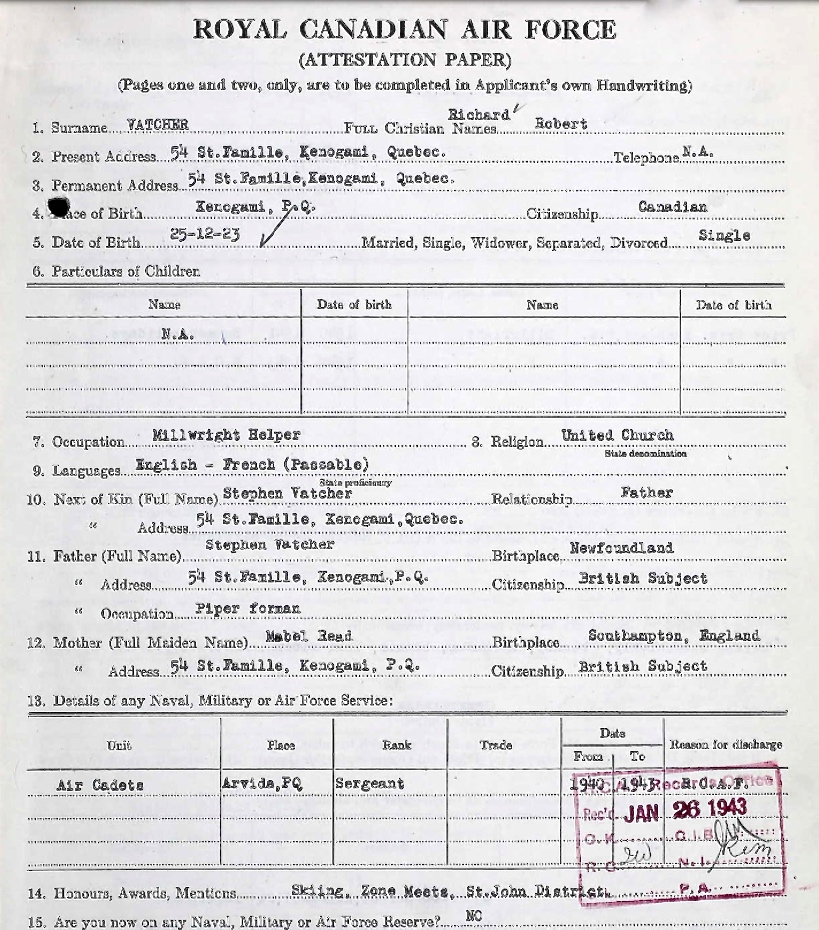 ROYAL CANADIAN AIR FORCE
(ATTESTATION PAPER)
(Pages one and two, only, are to be completed in Applicant's own Handwriting)
1. Surname VATCHER FULL Christian Names Richard Robert
2. Present Address 54 St.Famille, Kenogami, Quebec. Telephone N.A.
3. Permanent Address 54 St.Famille,Kenogami, Quebec.
4. ace of Birth Kenogami, P.Q. Citizenship Canadian
5. Date of Birth 25-12-23 Married, Single, Widower, Separated, Divorced Single
6. Particulars of Children
Name Date of birth Name Date of birth
N.A.
7. Occupation Millwright Helper 8. Religion United Church
State denomination
9. Languages English - French (Passable)
State proficiency
10. Next of Kin (Full Name) Stephen Vatcher Relationship Father
" Address 54 St.Famille, Kenogami,Quebec.
11. Father (Full Name) Stephen Vatcher Birthplace Newfoundland
" Address 54 St.Famille, Kenogami,P.Q. Citizenship British Subject
" Occupation Piper forman
12. Mother (Full Maiden Name) Mabel Read Birthplace Southampton, England
" Address 54 St.Famille, Kenogami, P.Q. Citizenship British Subject
13. Details of any Naval, Military or Air Force Service:
Unit Place Rank Trade Date Reason for discharge
From To
Air Cadets Arvida,PQ Sergeant 1940 1943 R.C.A.F.
Records Office
Rec'd JAN 26 1943
O.K. C.I.B.
R.C. N.I.
P.A.
14. Honours, Awards, Mentions Skiing, Zone Meets, St.John District.
15. Are you now on any Naval, Military or Air Force Reserve? NO